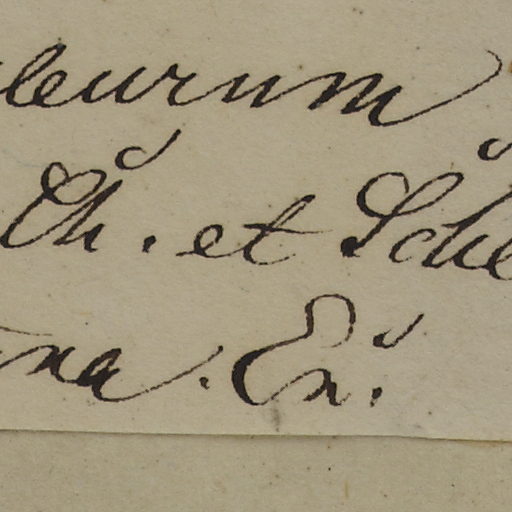 leurum
Ch. et Sche
na. En.